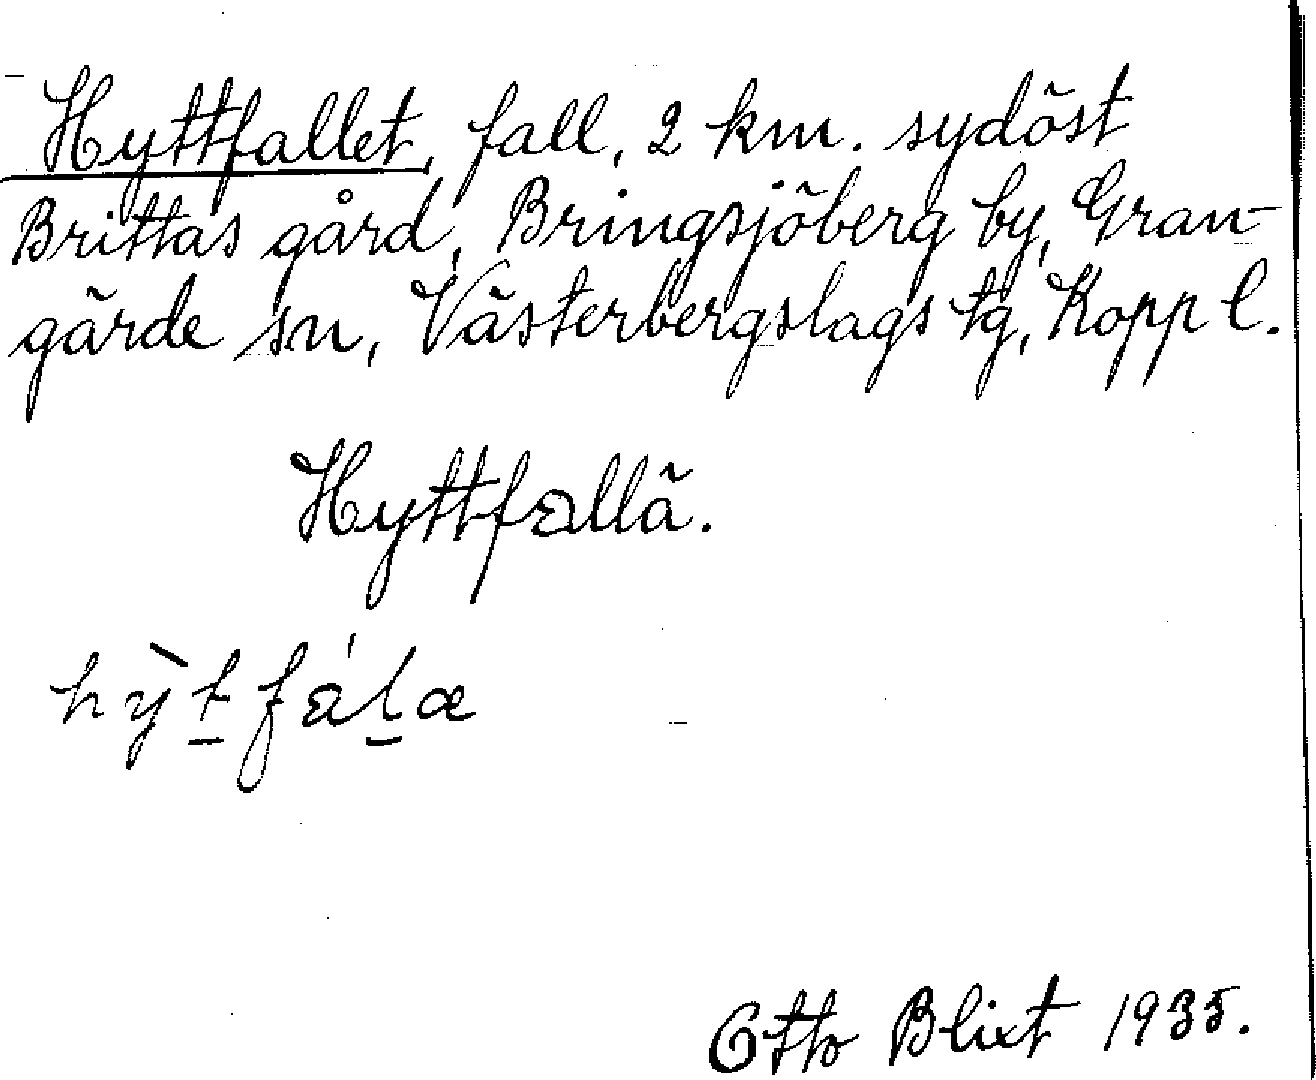 Hyttfallet, fall, 2 km. sydöst
Brittas gård, Bringsjöberg by, Gran-
gärde sn, Västerbergslags tg, Kopp l.
Hyttfallä.
hỳt̠fàl̠æ
Otto Blixt 1935.